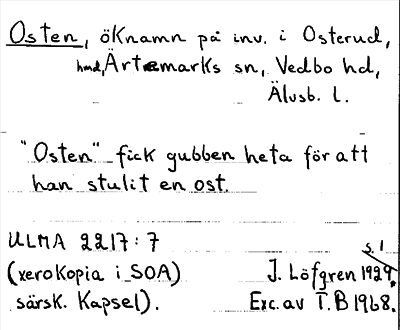 Osten, öknamn på inv. i Osterud,
hmd, Ärtemarks sn, Vedbo hd,
Älvsb. l.
"Osten" fick gubben heta för att
han stulit en ost.
ULMA 2217:7 s. 1
(xerokopia i SOA) J. Löfgren 1929.
särsk. Kapsel). Exc. av T.B 1968.